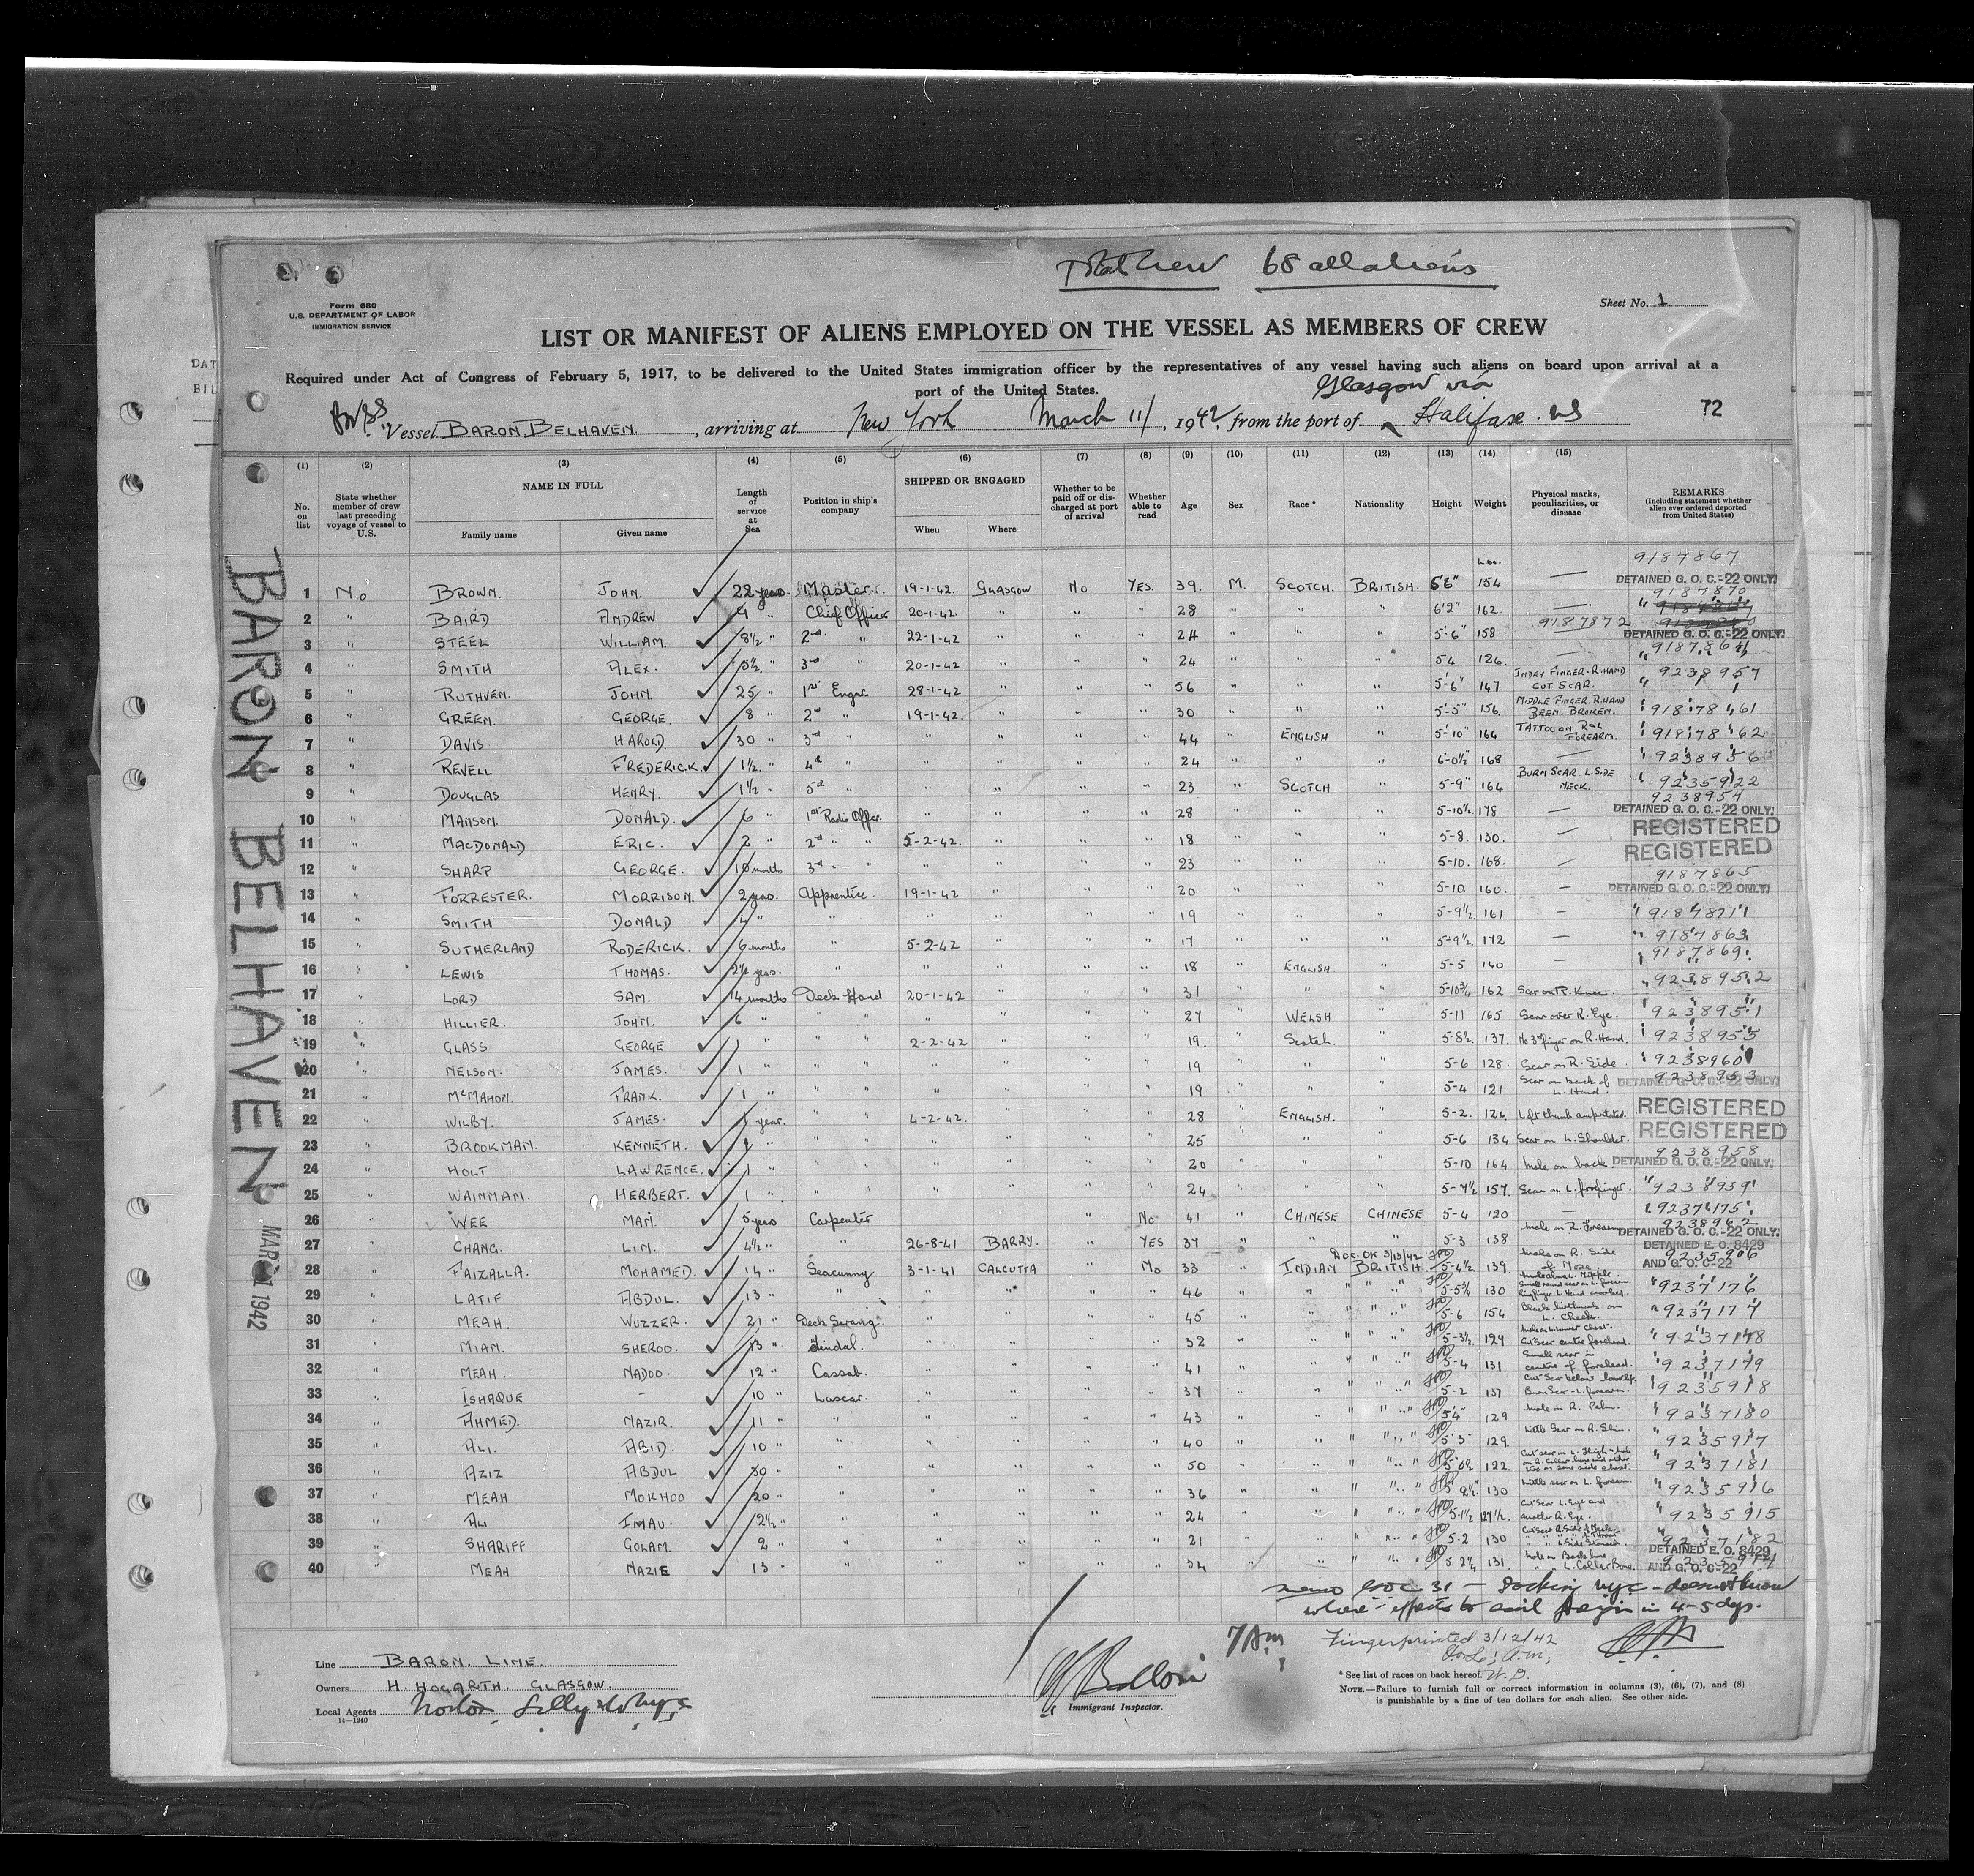 68 all aliens
Form 680
U.S. DEPARTMENT OF LABOR
IMMIGRATION SERVICE
Sheet No. 1
LIST OR MANIFEST OF ALIENS EMPLOYED ON THE VESSEL AS MEMBERS OF CREW
Required under Act of Congress of February 5, 1917, to be delivered to the United States immigration officer by the representatives of any vessel having such aliens on board upon arrival at a
port of the United States.
Glasgow via
Vessel BARON BELHAVEN, arriving at New York March 11, 1942, from the port of Halifax. NS
72
BARON BELHAVEN
1942
(1) (2) (3) (4) (5) (6) (7) (8) (9) (10) (11) (12) (13) (14) (15)
No. on list
State whether member of crew last preceding voyage of vessel to U.S.
NAME IN FULL
Family name Given name
Length of service at Sea
Position in ship's company
SHIPPED OR ENGAGED
When Where
Whether to be paid off or discharged at port of arrival
Whether able to read
Age Sex Race* Nationality Height Weight
Physical marks, peculiarities, or disease
REMARKS
(Including statement whether alien ever ordered deported from United States)
9187867
1 No BROWN. JOHN. 22 years. Master. 19-1-42. GLASGOW No YES. 39. M. SCOTCH. BRITISH. 154 — DETAINED G. O. C.-22 ONLY.
9187870
2 " BAIRD ANDREW 4 " Chief Officer 20-1-42. " " " 28 " " " 6'2" 162. —
9187872
3 " STEEL WILLIAM. 8½ " 2nd " 22-1-42 " " " 24 " " " 5'-6" 158 DETAINED G. O. C.-22 ONLY.
4 " SMITH ALEX. 3rd " 20-1-42 " " " 24 " " " 5-4 126. —
5 " RUTHVEN. JOHN 25 " 1st Engr. 28-1-42 " " " 56 " " " 5'-6" 147 INDEX FINGER-R.HAND CUT SCAR. 9238957
6 " GREEN. GEORGE. 8 " 2nd " 19-1-42. " " " 30 " " " 5'-5" 156. MIDDLE FINGER. R.HAND BROKEN. 9187861
7 " DAVIS HAROLD. 30 " 3rd " " " " " 44 " ENGLISH " 5-10" 164 TATTOO ON R&L FOREARM. 9187862
8 " REVELL FREDERICK. 1½. " 4th " " " " " 24 " " " 6-0½" 168 — 9238956
9 " DOUGLAS HENRY. 1½ " 5th " " " " " 23 " SCOTCH " 5-9" 164 BURN SCAR. L.SIDE NECK. 9235922
9238954
10 " MANSON. DONALD. 6 " 1st Radio Offcr. " " " " 28 " " " 5-10½. 178 — DETAINED G. O. C.-22 ONLY.
11 " MACDONALD ERIC. 2 " 2nd " " 5-2-42. " " " 18 " " " 5-8. 130. — REGISTERED
12 " SHARP GEORGE. 10 months 3rd " " " " " " 23 " " " 5-10. 168. — REGISTERED
9187865
13 " FORRESTER. MORRISON. 2 years. Apprentice. 19-1-42 " " " 20 " " " 5-10 160. — DETAINED G. O. C.-22 ONLY.
14 " SMITH DONALD " " " " " " 19 " " " 5-9½. 161 — 9187871
15 " SUTHERLAND RODERICK. 6 months " 5-2-42 " " " 17 " " " 5-9½. 172 — 9187863
16 " LEWIS THOMAS. 2½ years. " " " " " 18 " ENGLISH. " 5-5 140 — 9187869
17 " LORD SAM. 14 months Deck Hand 20-1-42 " " " 31 " " " 5-10¾ 162 Scar on R. Knee. 9238952
18 " HILLIER. JOHN. 6 " " " " " " " 27 " WELSH " 5-11 165 Scar over R. Eye. 9238951
19 " GLASS GEORGE 1 " " " 2-2-42 " " " 19. " Scotch. " 5-8½. 137. No 3rd finger on R. Hand. 9238955
20 " NELSON. JAMES. 1 " " " " " " " 19 " " " 5-6 128. Scar on R. Side 9238960
21 " McMAHON. FRANK. 1 " " " " " " " 19 " " " 5-4 121 Scar on back of L. Hand. 9238953 DETAINED G. O. C.-22 ONLY.
22 " WILBY. JAMES. 1 year. " " 4-2-42. " " " 28 " ENGLISH. " 5-2. 126. Left thumb amputated. REGISTERED
23 " BROOKMAN. KENNETH. " " " " " " " 25 " " " 5-6 134 Scar on L. Shoulder. REGISTERED
9238958
24 " HOLT LAWRENCE. 1 " " " " " " " 20 " " " 5-10 164 Mole on back DETAINED G. O. C.-22 ONLY.
25 " WAINMAN. HERBERT. 1 " " " " " " " 24 " " " 5-7½ 157. Scar on L. forefinger. 9238959
26 " WEE MAN. 5 years Carpenter " No 41 " CHINESE CHINESE 5-4 120 — 9237175
9238962
27 " CHANG. LIM. 4½ " " 26-8-41 BARRY. " YES 37 " " " 5-3 138 Mole on R. Forearm DETAINED G. O. C.-22 ONLY.
DETAINED E. O. 8429
Doc. OK 3/13/42
28 " FAIZALLA. MOHAMED. 14 " Seacunny 3-1-41 CALCUTTA " No 33 " INDIAN BRITISH. 5-4½ 139. Mole on R. Side of Nose 9235906 AND G. O. C.-22
29 " LATIF ABDUL. 13 " " " " " " 46 " " " 5-5¾ 130 9237176
30 " MEAH. WUZZER. 21 " Deck Serang. " " " " 45 " " " 5-6 154 Black birthmark on L. Cheek. 9237177
31 " MIAN. SHEROO. 13 " Tindal. " " " " 32 " " " 5-3½. 124 Cut Scar centre forehead. 9237178
32 " MEAH. NADOO. 12 " Cassab. " " " " 41 " " " 5-4 131 Small scar in centre of forehead. 9237179
33 " ISHAQUE - 10 " Lascar. " " " " 37 " " " 5-2 137 Burn Scar - L. forearm. 9235918
34 " AHMED. NAZIR. 11 " " " " " " 43 " " " 5'4" 129 Mole on R. Palm. 9237180
35 " ALI. ABID. 10 " " " " " " 40 " " " 129. Little Scar on R. Shin. 9235917
36 " AZIZ ABDUL 30 " " " " " " 50 " " " 122. 9237181
37 " MEAH MOKHOO 20 " " " " " " 36 " " " 130 Little scar on L. forearm. 9235916
38 " ALI IMAU. 2½ " " " " " " 24 " " " 5-1½ 127½. Cut Scar L. Eye and another R. Eye. 9235915
39 " SHARIFF GOLAM. 2 " " " " " " 21 " " " 5-2 130 9237182
DETAINED E. O. 8429
40 " MEAH NAZIE 13 " " " " " " 34 " " " 131. AND G. O. C.-22
in 4-5 dys.
7 Am
Fingerprinted 3/12/42
Line BARON. LINE.
Owners H. HOGARTH. GLASGOW.
Local Agents Norton, Lilly
14-1240
Immigrant Inspector.
* See list of races on back hereof.
NOTE.—Failure to furnish full or correct information in columns (3), (6), (7), and (8)
is punishable by a fine of ten dollars for each alien. See other side.